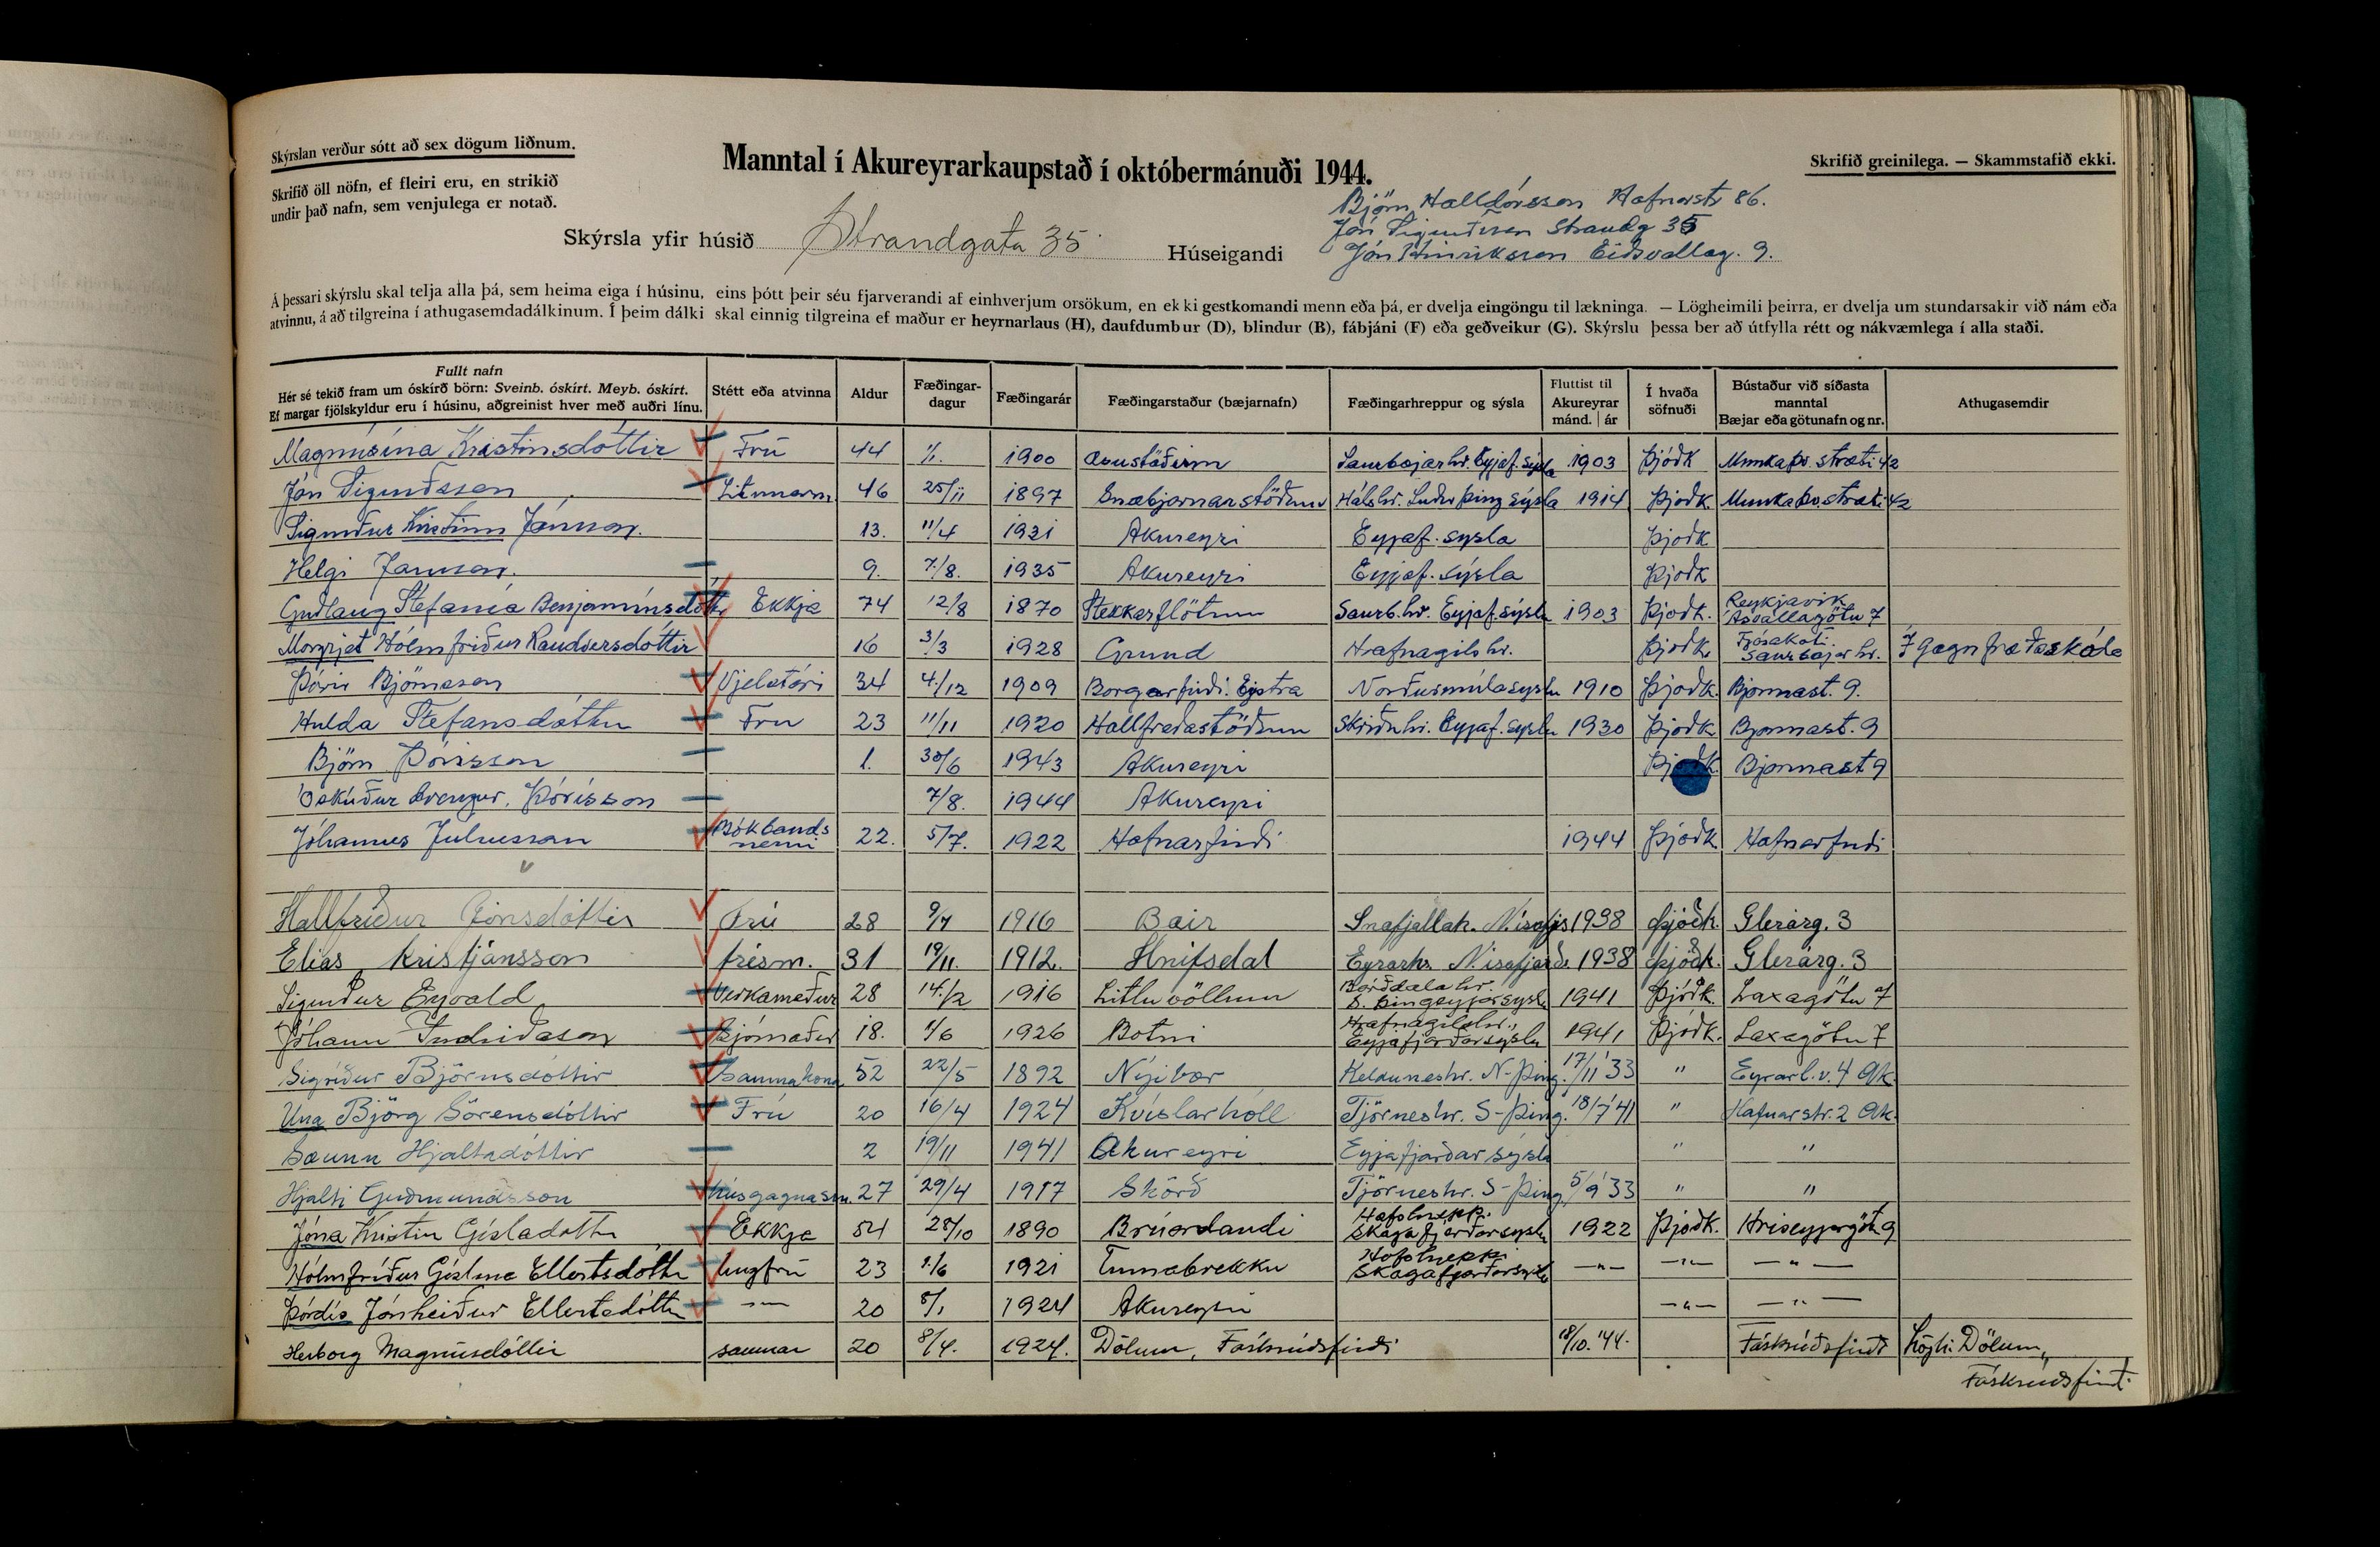 Skýrslan verður sótt að sex dögum liðnum.
Skrifið öll nöfn, ef fleiri eru, en strikið
undir það nafn, sem venjulega er notað.
Manntal í Akureyrarkaupstað í októbermánuði 1944.
Skrifið greinilega. — Skammstafið ekki.
Skýrsla yfir húsið Strandgata 35 Húseigandi
Björn Halldórsson Hafnarstr 86.
Jón Sigurðsson Strandg 35
Jón Hinriksson Eiðsvallag. 9.
Á þessari skýrslu skal telja alla þá, sem heima eiga í húsinu, eins þótt þeir séu fjarverandi af einhverjum orsökum, en ekki gestkomandi menn eða þá, er dvelja eingöngu til lækninga. — Lögheimili þeirra, er dvelja um stundarsakir við nám eða
atvinnu, á að tilgreina í athugasemdadálkinum. Í þeim dálki skal einnig tilgreina ef maður er heyrnarlaus (H), daufdumbur (D), blindur (B), fábjáni (F) eða geðveikur (G). Skýrslu þessa ber að útfylla rétt og nákvæmlega í alla staði.
Fullt nafn
Hér sé tekið fram um óskírð börn: Sveinb. óskírt. Meyb. óskírt.
Ef margar fjölskyldur eru í húsinu, aðgreinist hver með auðri línu.
Stétt eða atvinna
Aldur
Fæðingar-
dagur
Fæðingarár
Fæðingarstaður (bæjarnafn)
Fæðingarhreppur og sýsla
Fluttist til
Akureyrar
mánd. | ár
Í hvaða
söfnuði
Bústaður við síðasta
manntal
Bæjar eða götunafn og nr.
Athugasemdir
Magnúsína Kristinsdóttir Frú 44 1/1. 1900 Saurbæjarhr. Eyjaf. sýsla 1903 Þjóðk Munkaþv. stræti 42
Jón Sigurðsson 46 25/11 1897 Snæbjarnarstöðum Hálshr. Suður Þing sýsla 1914 Þjoðk. Munkaþv. stræti 42
Sigurður Kristinn Jónsson. 13. 11/4 1931 Akureyri Eyjaf. sýsla Þjoðk
Helgi Jónsson. 9. 7/8. 1935 Akureyri Eyjaf. sýsla Þjoðk
Guðlaug Stefanía Benjamínsdóttir Ekkja 74 12/8 1870 Stekkarflötum Saurb.hr. Eyjaf.sýslu 1903 Þjoðk. Reykjavik Ásvallagötu 7
Margrjet Hólmfríður Randversdóttir 16 3/3 1928 Grund Hrafnagils hr. Þjoðk. Saurbæjar hr. Í Gagnfræðaskóla
Þórir Björnsson Vjelstjóri 34 4./12 1909 Borgarfirði. Eystra Norðurmúlasyslu 1910 Þjoðk. Bjarmast. 9.
Hulda Stefansdóttir Fru 23 11/11 1920 Hallfreðastöðum Skriðuhr. Eyjaf. syslu 1930 Þjoðk Bjarmast. 9
Björn Þórisson 1. 30/6 1943 Akureyri Þjoðk. Bjarmast 9
Óskírður drengur. Þórisson 7/8. 1944 Akureyri
Jóhannes Juliusson Bókbands nemi 22. 5/7. 1922 Hafnarfirði 1944 Þjoðk. Hafnarfirði
Hallfríður Jónsdóttir Frú 28 9/7 1916 Bæir Snæfjallah. N.ísafjs 1938 Þjóðk. Glerárg. 3
Elias Kristjánsson trésm. 31 19/11. 1912. Hnifsdal Eyrarhr. N.isafjarðs. 1938 Þjóðk. Glerárg. 3
Sigurður Eyvald Verkamaður 28 14./2 1916 Litluvöllum Bárðdalahr. S. Þingeyjarsyslu 1941 Þjóðk. Laxagötu 7
Jóhann Indriðason Sjómaður 18. 1/6 1926 Botni Hrafnagilshr., Eyjafjarðarsyslu 1941 Þjóðk. Laxagötu 7
Sigríður Björnsdóttir Saumakona 52 22/5 1892 Nýibær Kelduneshr. N-Þing. 17/11 '33 " Eyrarl.v. 4 Ak.
Una Björg Sörensdóttir Frú 20 16/4 1924 Kvíslarhóll Tjörneshr. S-Þing. 18/7 '41 " Hafnarstr. 2 Ak.
Sæunn Hjaltadóttir 2 19/11 1941 Akureyri Eyjafjarðarsýsla " "
Hjalti Guðmundsson húsgagnasm. 27 29/4 1917 Skörð Tjörneshr. S-Þing. 5/9 '33 " "
Jóna Kristin Gísladóttir Ekkja 54 28/10 1890 Brúarlandi Hofshrepp. Skagafjarðarsyslu 1922 Þjoðk. Hriseyjargötu 9
Hólmfríður Gíslína Ellertsdóttir Ungfrú 23 1./6 1921 Tumabrekku Hofshreppi Skagafjarðarsyslu —"— —"— —"—
Þórdís Jónheiður Ellertsdóttir —"— 20 8/1 1924 Akureyri —"— —"—
Herborg Magnúsdóttir saumar 20 8/4. 1924. Dölum, Fáskrúðsfirði 18/10. '44. Fáskrúðsfirði Lögh. Dölum,
Fáskrúðsfirði.